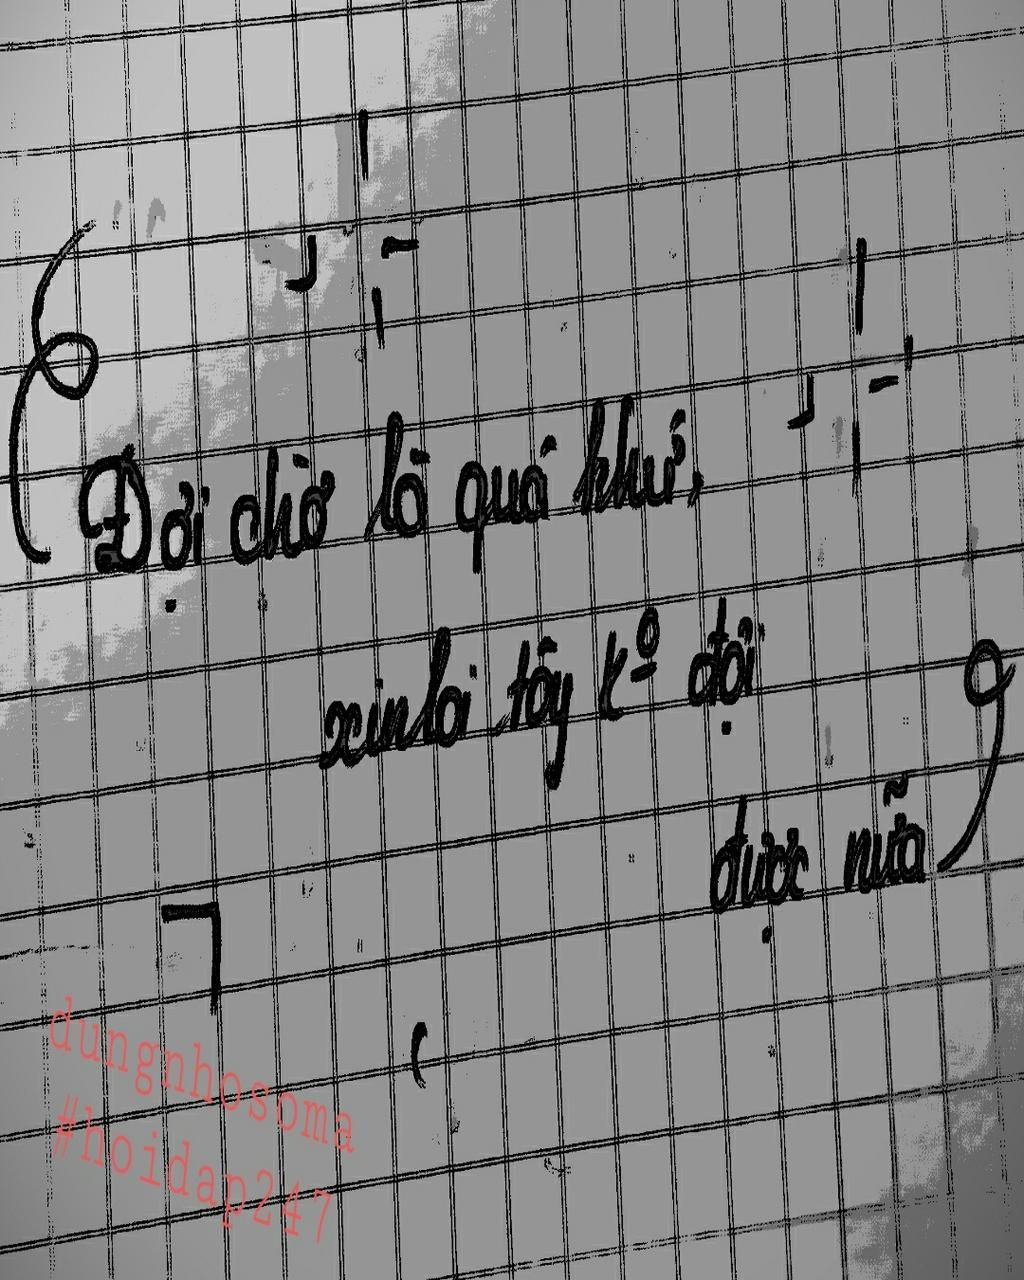 Đợi chờ là quá khứ,
xin lỗi tôy kº đợi
được nữa
dungnhosoma
#hoidap247